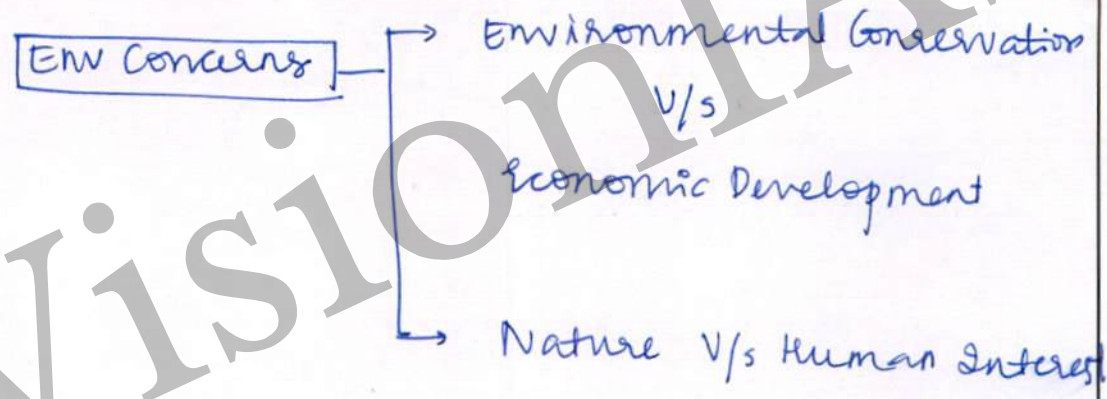 Env Concerns
Environmental Conservation
V/s
Economic Development
Nature V/s Human Interest
VisionIA